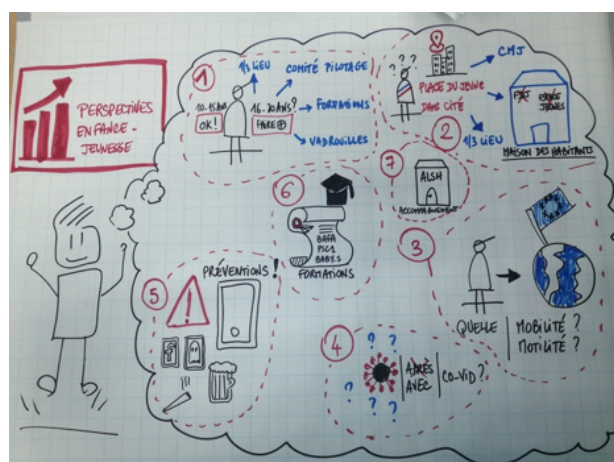 PERSPECTIVES
ENFANCE -
JEUNESSE
1
1/3 LIEU
COMITÉ PILOTAGE
10-15 ANS
OK!
16-20 ANS?
FAIRE ⊕
FORMATIONS
VADROUILLES
? ? ?
PLACE DU JEUNE
DANS CITÉ
CMJ
1/3 LIEU
ESPACE
JEUNES
MAISON DES HABITANTS
2
7
ALSH
ACCOMPAGNEMENT
6
BAFA
PSC1
BABY.S
FORMATIONS
3
QUELLE
MOBILITÉ ?
MOTILITÉ ?
5
PRÉVENTIONS !
!
f
4
? ?
?
? ?
APRÈS
AVEC
CO-VID ?